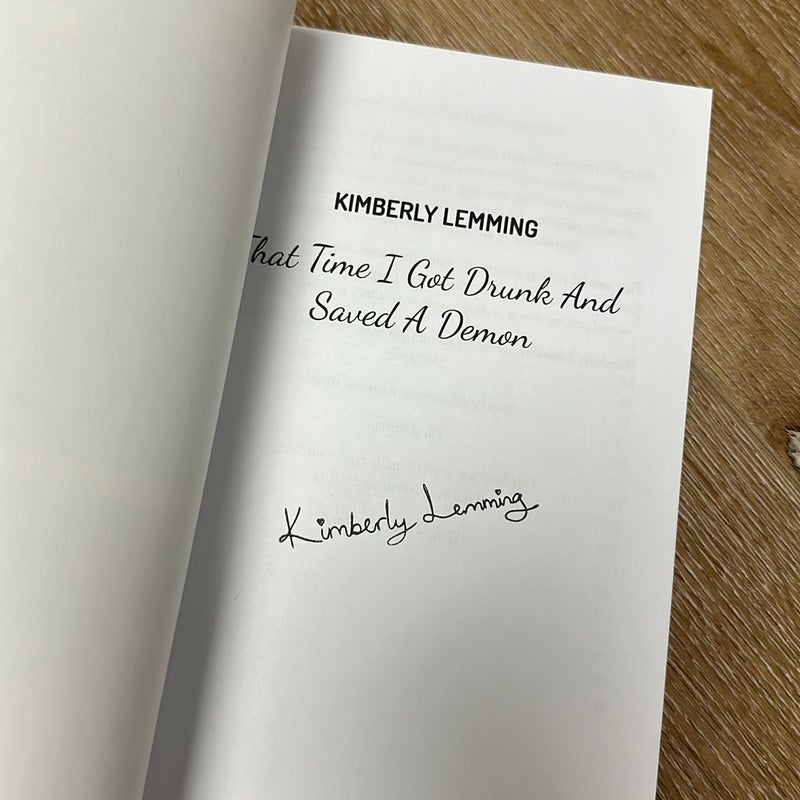 KIMBERLY LEMMING
That Time I Got Drunk And
Saved A Demon
Kimberly Lemming